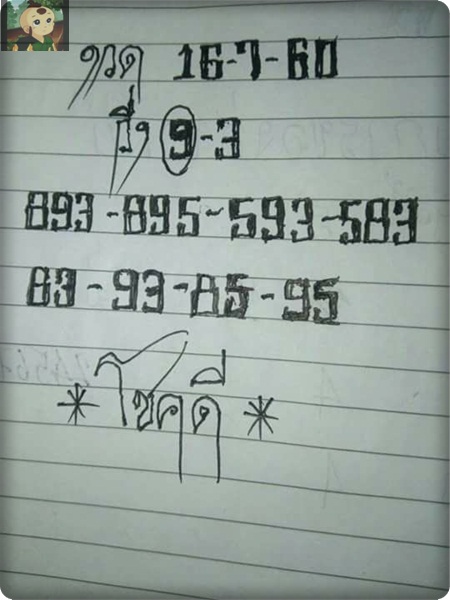 งวด 16-7-60
วิ่ง 9-3
893-895-593-583
83-93-85-95
* โชคดี *